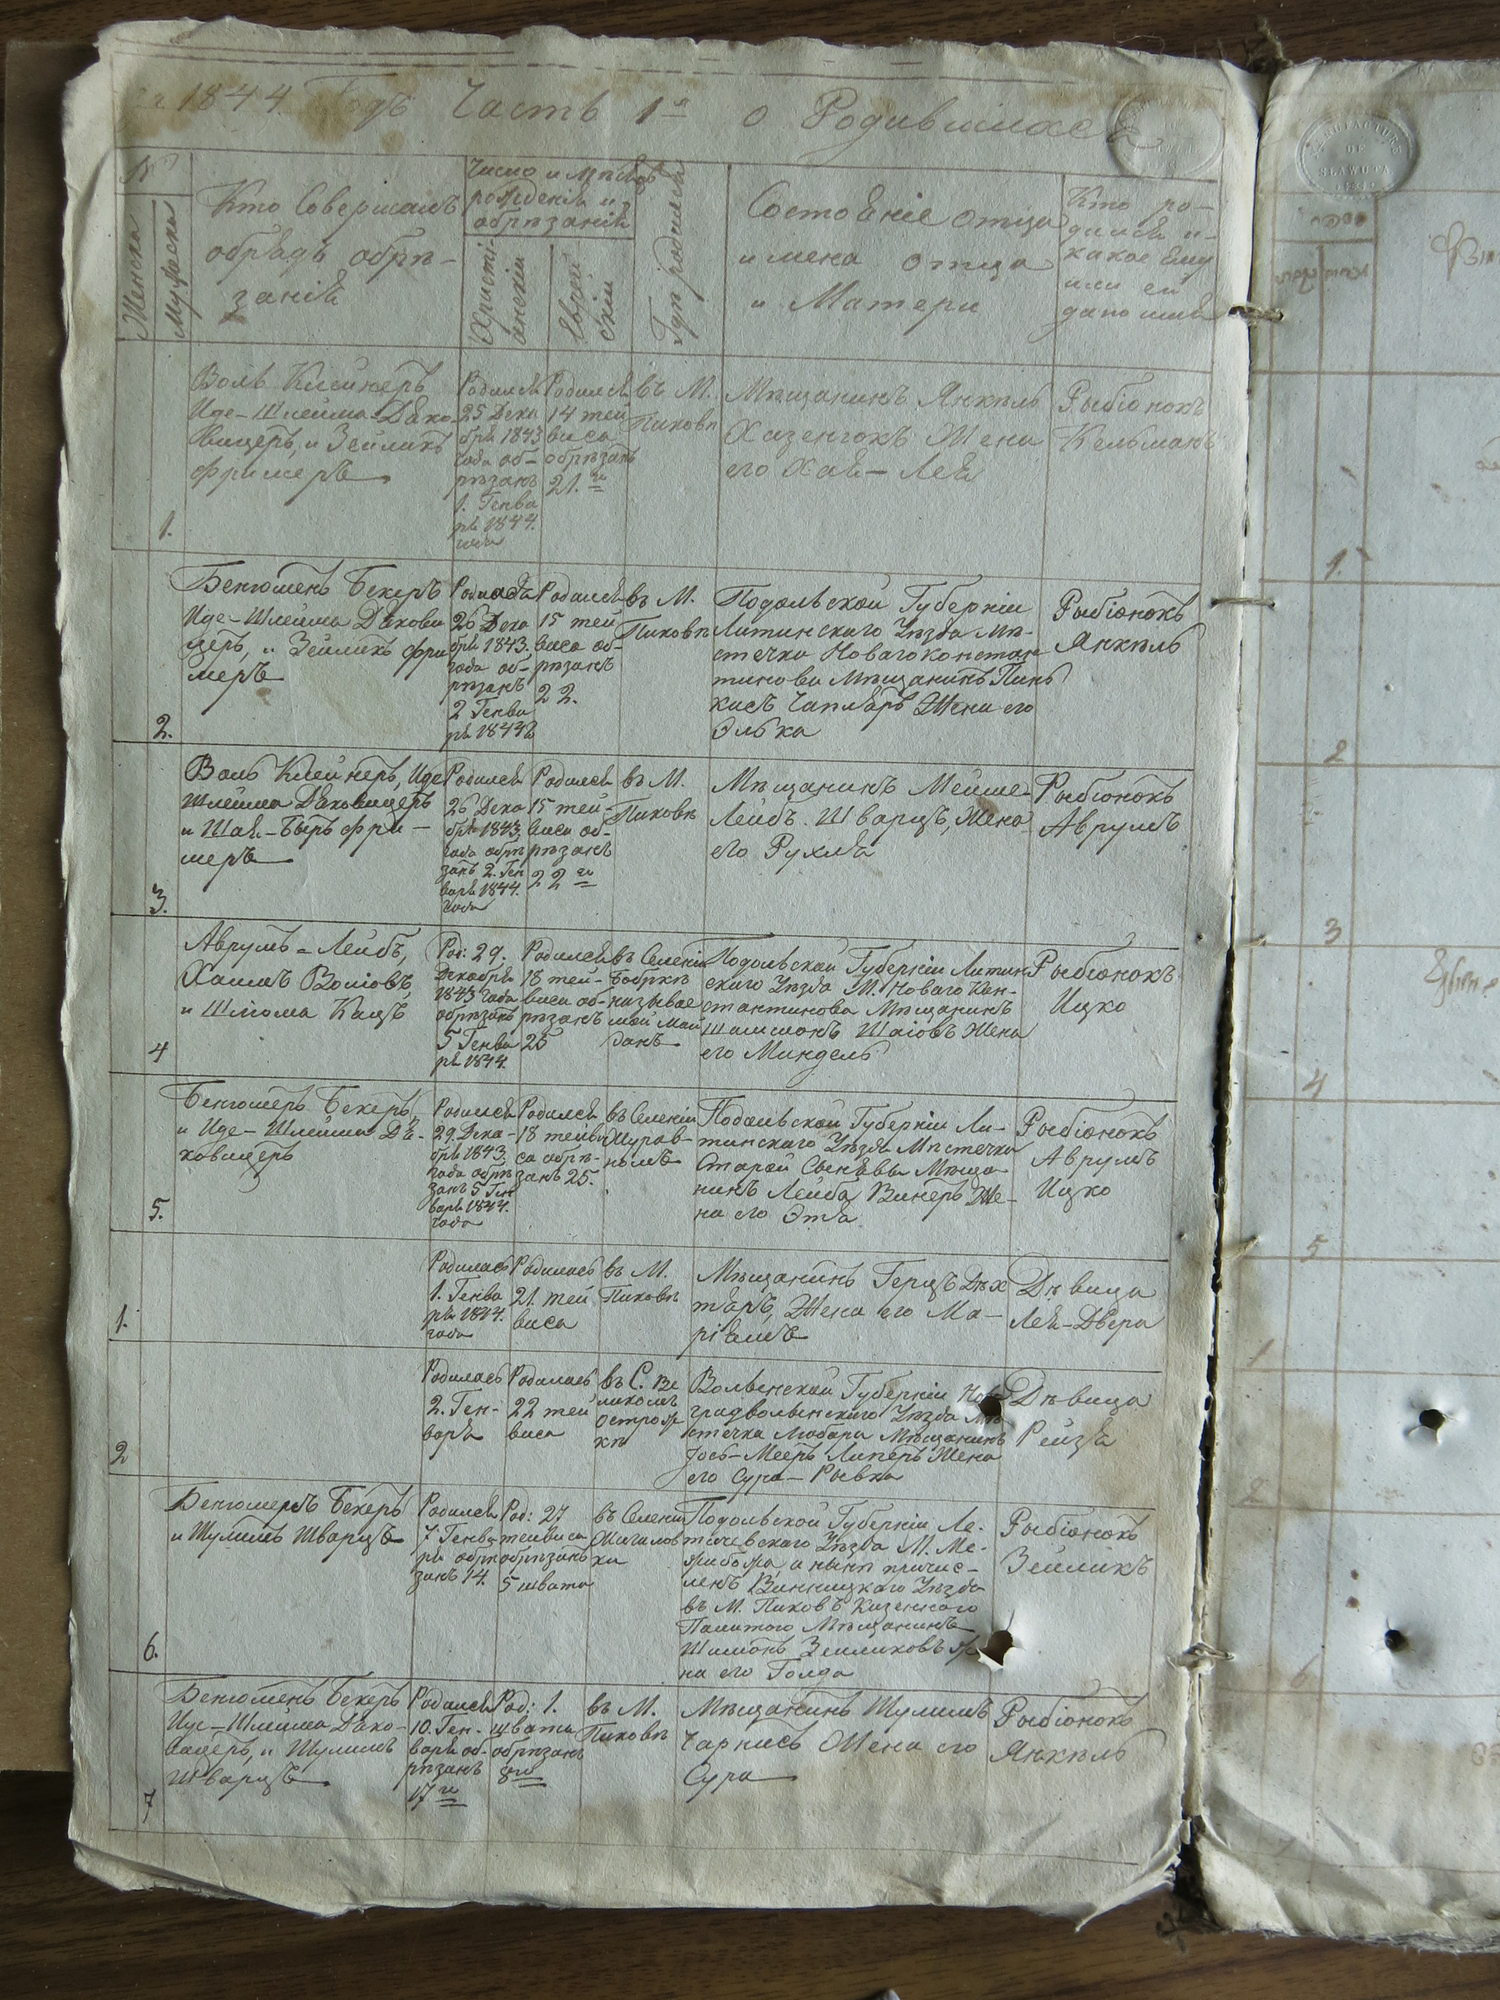 на 1844 Годъ Часть 1я о Родившихся
№
Женска
Мужеска
Кто Совершалъ
обрядъ обрѣ-
занія
Число и мѣсяцъ
рожденія и
обрѣзанія
Христі-
анскій
Еврей
скій
Гдѣ родился
Состояніе отца
имена отца
и Матери
Кто ро-
дился и
какое ему
или ей
дано имя
1.
Воль Клейнеръ
Иде-Шлейма Дахо
вицеръ, и Зейликъ
фримеръ
Родился
25 Дека
бря 1843
года об-
рѣзанъ
1. Генва
ря 1844.
года
Родился
14 тей
виса
обрѣзанъ
21.го
въ М.
Пиковѣ
Мѣщанинъ Янкель
Хазенгокъ Жена
его Хая-Лея
Рыбіонокъ
Кельманъ
2.
Бенюменъ Бекеръ
Иде-Шлейма Дахови
церъ, и Зейликъ фри
меръ
Родился
26 Дека
бря 1843.
года об-
рѣзанъ
2 Генва
ря 1844
Родился
15 тей
виса об-
рѣзанъ
22.
въ М.
Пиковѣ
Подольской Губерніи
Литинскаго Уѣзда Мѣ-
стечка Новагоконстан
тинова Мѣщанинъ Пинь
касъ Чаплеръ Жена его
Элька
Рыбіонокъ
Янкель
3.
Воль Клейнеръ, Иде
Шлейма Даховицеръ
и Шая-Беръ фри-
меръ
Родился
26 Дека
бря 1843,
года обрѣ
занъ 2. Ген
варя 1844.
года
Родился
15 тей-
виса об-
рѣзанъ
22 го
въ М.
Пиковѣ
Мѣщанинъ Мейше-
Лейбъ Шварцъ, Жена
его Рухля
Рыбіонокъ
Аврумъ
4
Аврумъ-Лейбъ,
Хаимъ Воліовъ,
и Шліома Кацъ
Род: 29.
Декабря
1843 года
обрѣзанъ
5 Генва
ря 1844.
Родился
18 тей-
виса об-
рѣзанъ
25
въ Селеніи
Бобркѣ
называе
мой Май
данъ
Подольской Губерніи Литин
скаго Уѣзда М. Новаго Кон-
стантинова Мѣщанинъ
Шлимонъ Шаіовъ Жена
его Миндель
Рыбіонокъ
Ицко
5.
Бенюменъ Бекеръ,
и Иде-Шлейма Да-
ховицеръ
Родился
29. Дека-
бря 1843.
года обрѣ
занъ 5 Ген
варя 1844.
года
Родился
18 тейви
са обрѣ-
занъ 25.
въ Селеніи
Журав-
номъ
Подольской Губерніи Ли-
тинскаго Уѣзда Мѣстечка
Старой Сенявы Мѣща-
нинъ Лейба Винеръ Же-
на его Этя
Рыбіонокъ
Аврумъ
Ицко
1.
Родилась
1. Генва
ря 1844.
года
Родилась
21. тей
виса
въ М.
Пиковѣ
Мѣщанинъ Герцъ Дѣх
теръ, Жена его Ма-
ріямъ
Дѣвица
Лея-Двера
2
Родилась
2. Ген-
варя
Родилась
22 тей
виса
въ С. Ве
ликомъ
Острож
кѣ
Волынской Губерніи Нов
градволынскаго Уѣзда Мѣ
стечка Любара Мѣщанинъ
Іось-Мееръ Липеръ Жена
его Сура-Рывка
Дѣвица
Рейзя
6.
Бенюменъ Бекеръ
и Шулимъ Шварцъ
Родился
7 Генва-
ря обрѣ
занъ 14.
Род: 27
тейвиса
обрѣзанъ
5 швата
въ Селеніи
Жигалов
ки
Подольской Губерніи Ле-
тичевскаго Уѣзда М. Ме-
жибожа, а нынѣ причис-
ленъ Винницкаго Уѣзда
въ М. Пиковъ Казеннаго
Мѣщанинъ
Шимонъ Зейликовъ Же
на его Голда
Рыбіонокъ
Зейликъ
7
Бенюменъ Бекеръ
Иде-Шлейма Дахо-
вицеръ, и Шулимъ
Шварцъ
Родился
10. Ген-
варя об-
рѣзанъ
17 го
Род: 1.
швата
обрѣзанъ
8го
въ М.
Пиковѣ
Мѣщанинъ Шулимъ
Чарнисъ Жена его
Сура
Рыбіонокъ
Янкель
MANUFACTURE
DE
SLAWUTA
1.
2
3
4
5
1
2
6